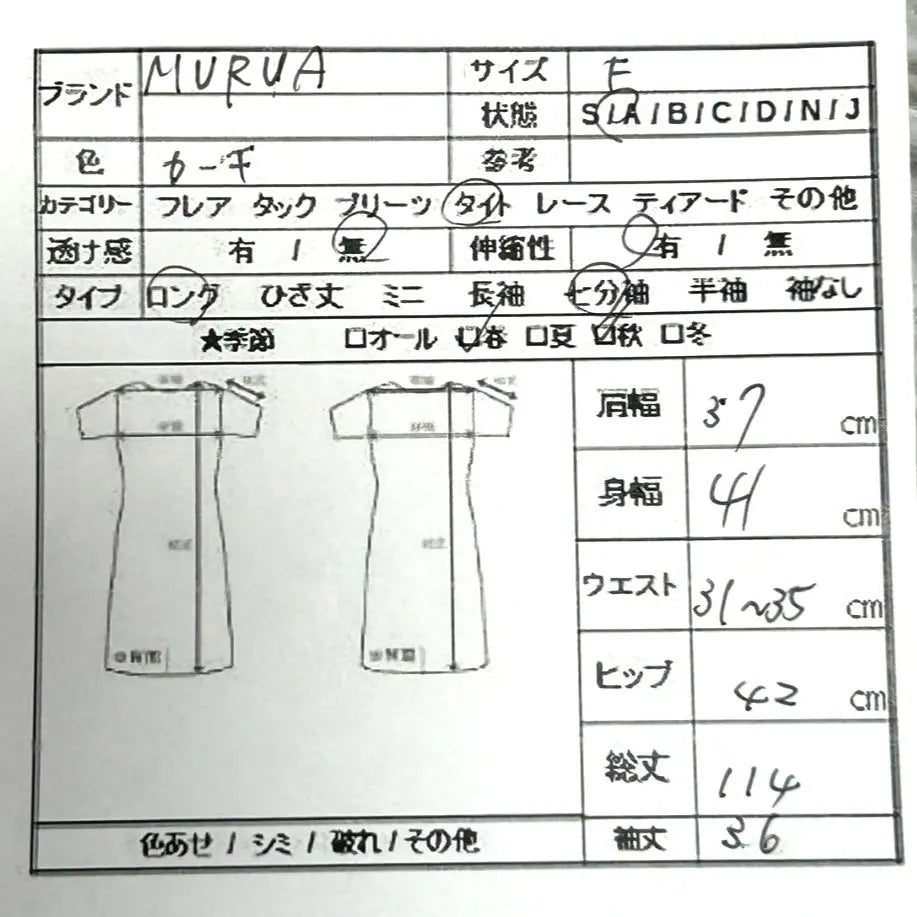 ブランド MURUA サイズ F
状態 S/A/B/C/D/N/J
色 カーキ 参考
カテゴリー フレア タック プリーツ タイト レース ティアード その他
透け感 有 / 無 伸縮性 有 / 無
タイプ ロング ひざ丈 ミニ 長袖 七分袖 半袖 袖なし
★季節 □オール □春 □夏 □秋 □冬
肩幅 37 cm
身幅 41 cm
ウエスト 31~35 cm
ヒップ 42 cm
総丈 114
色あせ / シミ / 破れ / その他 袖丈 36